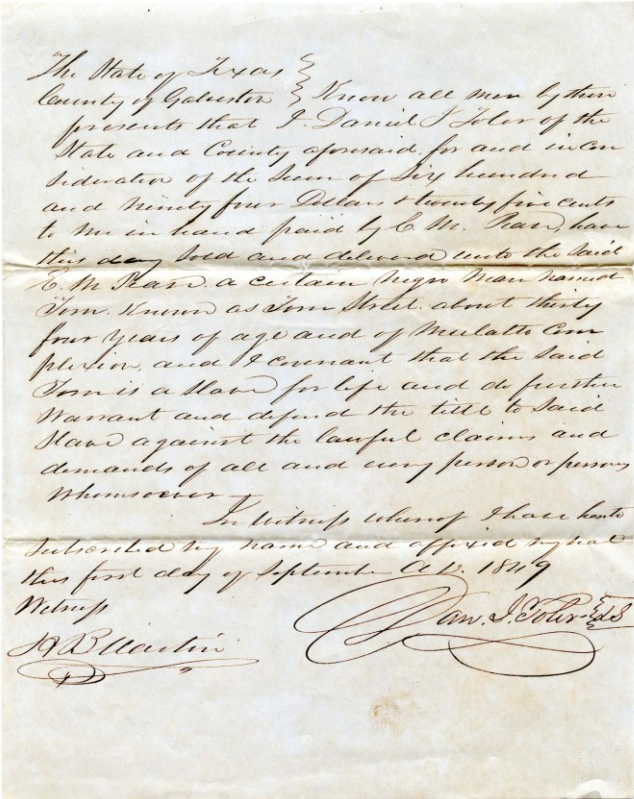 The State of Texas
County of Galveston } Know all men by these
presents that I. Daniel J Toler of the
State and County aforesaid for and in con
sideration of the Sum of Six hundred
and ninety four Dollars & twenty five cents
to me in hand paid by C. M. Pean, have
this day Sold and delivered unto the said
C. M Pean a certain negro man named
Tom. Known as Tom Street. about thirty
four years of age and of Mulatto Com
plexion, and I covenant that the said
Tom is a slave for life and do further
Warrant and defend the title to said
Slave against the lawful claims and
demands of all and every person or persons
whomsoever —
In witness whereof I have hereto
subscribed my name and affixed my seal
this first day of September A.D. 1849
Witness
Dan. J. Toler LS
A B Martin